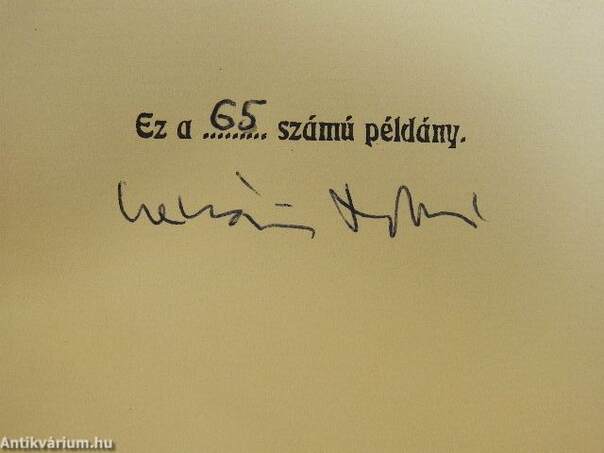 Ez a 65 számú példány.
Antikvárium.hu